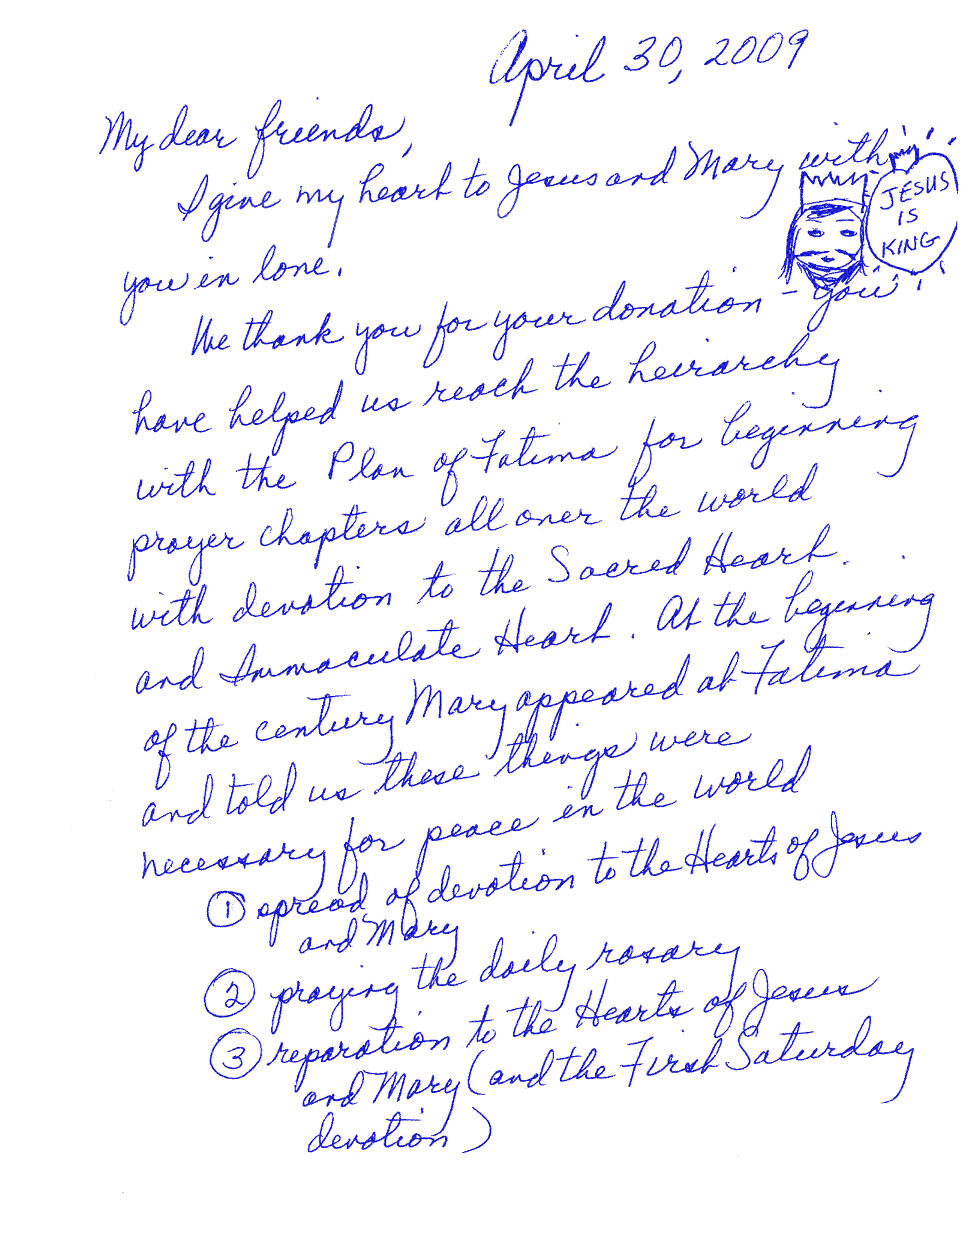 April 30, 2009
My dear friends,
I give my heart to Jesus and Mary with
JESUS
IS
KING
you in love.
We thank you for your donation - you
have helped us reach the heirarchy
with the Plan of Fatima for beginning
prayer chapters all over the world
with devotion to the Sacred Heart
and Immaculate Heart. At the beginning
of the century Mary appeared at Fatima
and told us these things were
necessary for peace in the world
① spread of devotion to the Hearts of Jesus
and Mary
② praying the daily rosary
③ reparation to the Hearts of Jesus
and Mary (and the First Saturday
devotion)